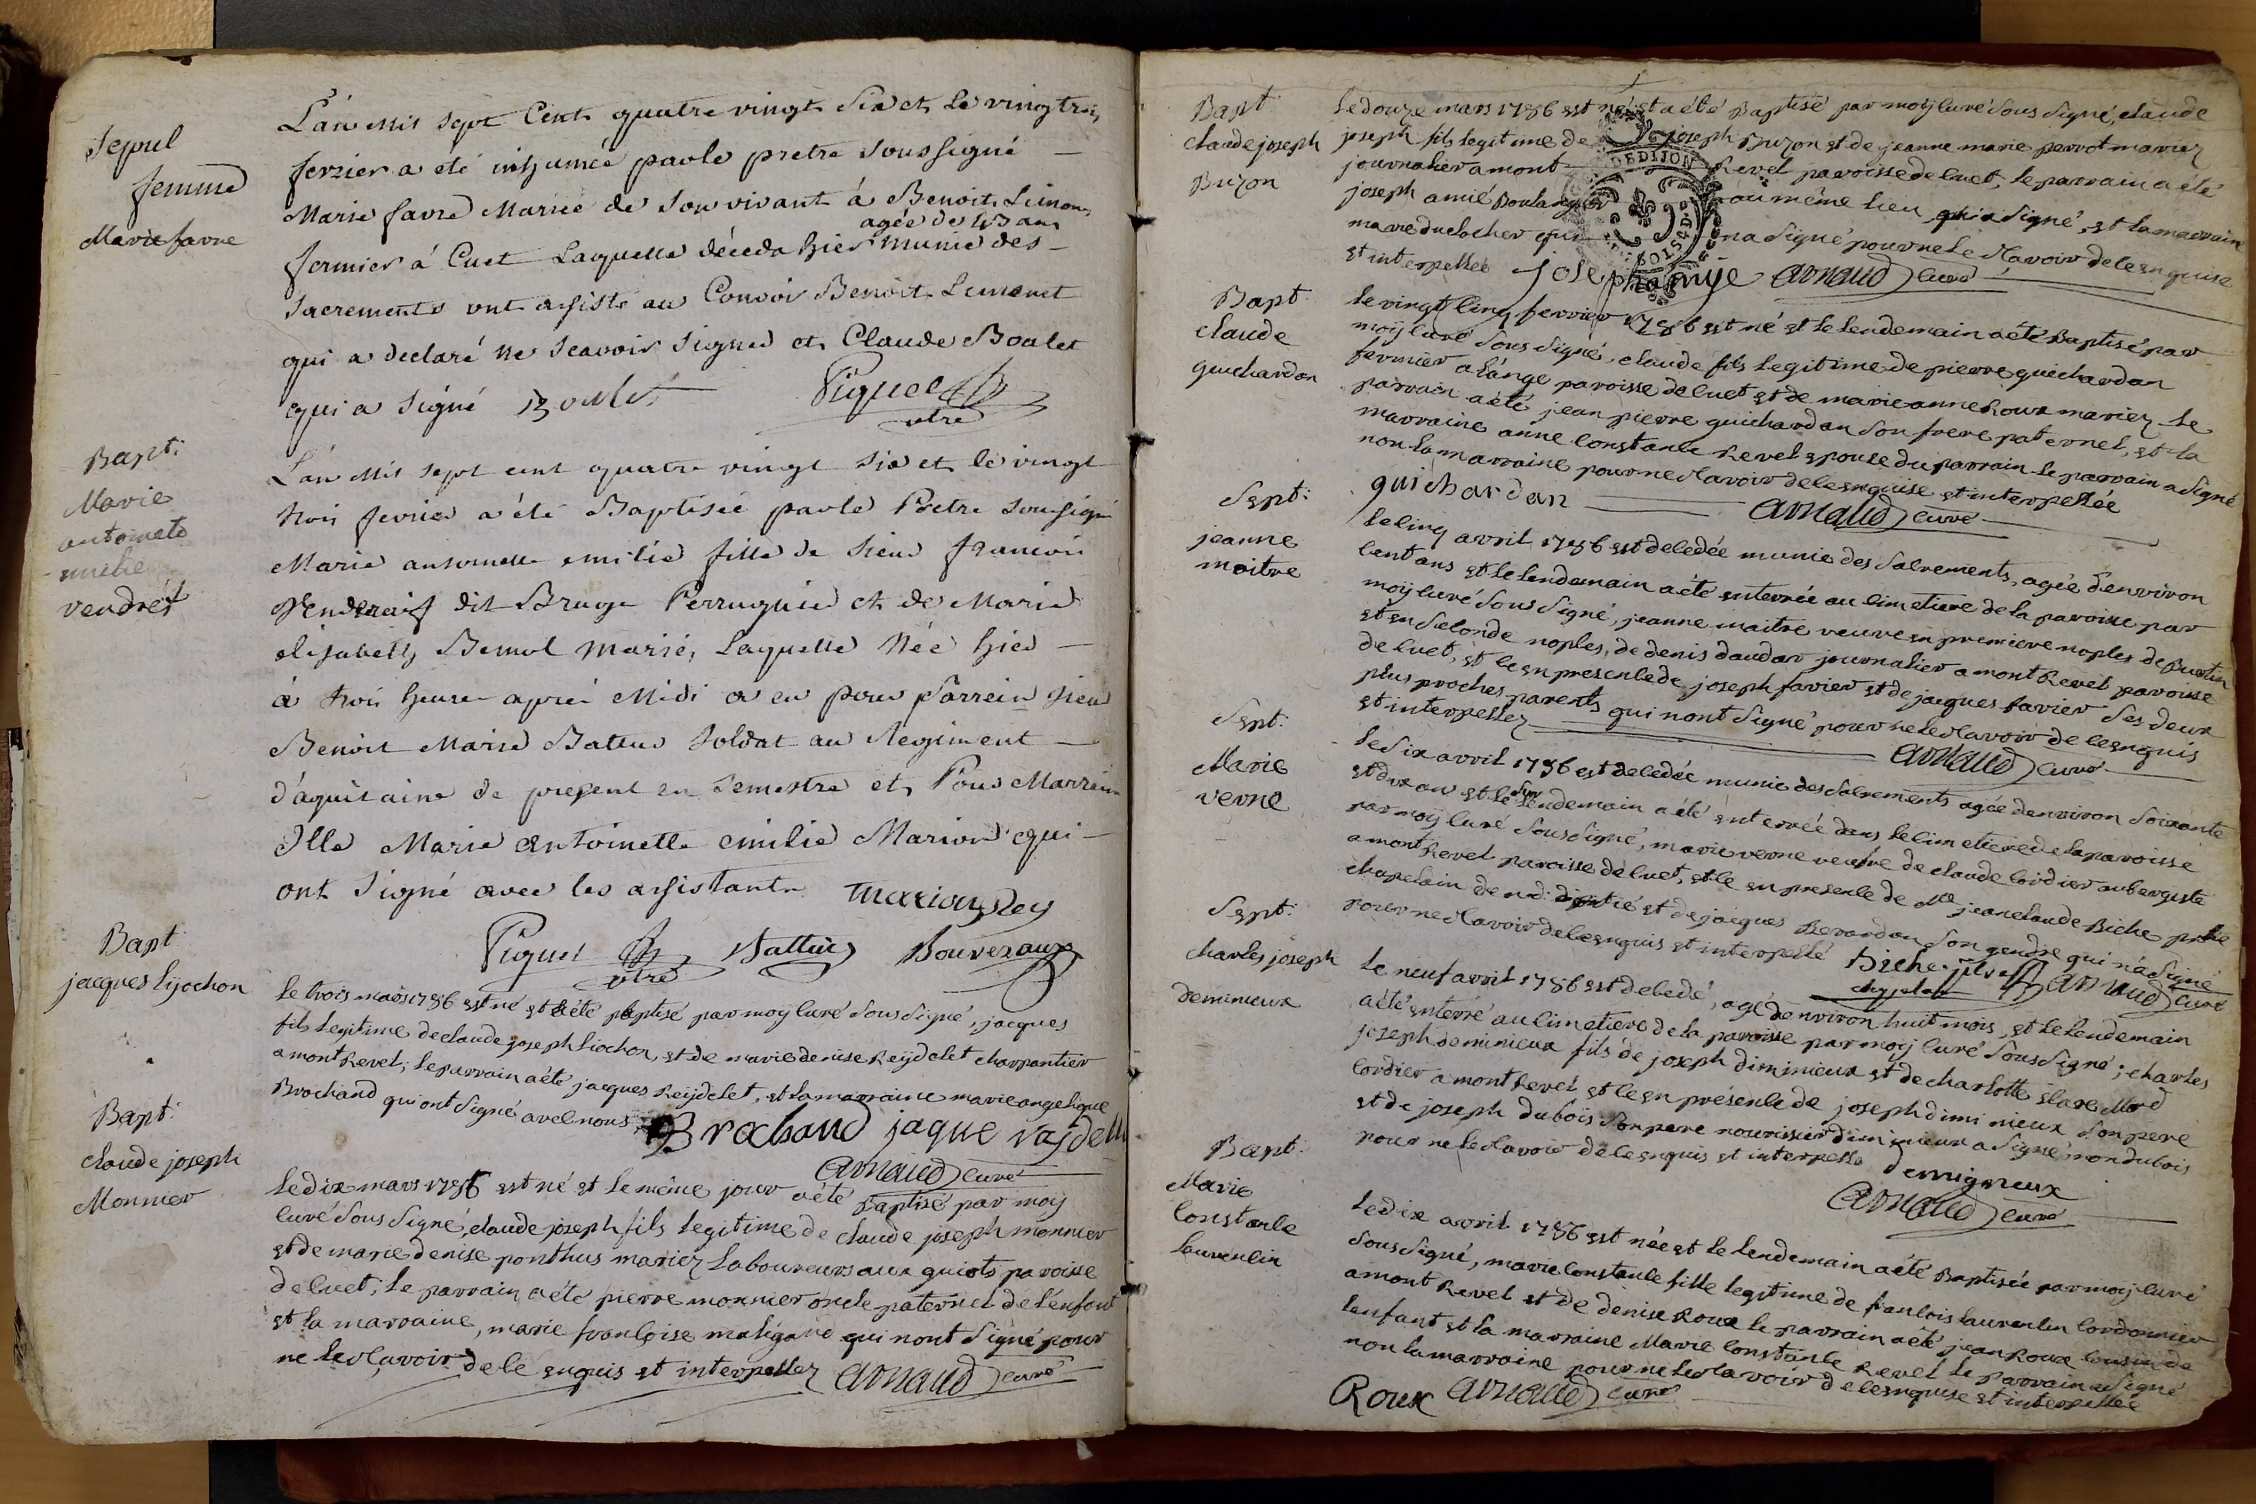 Sepul
femme
Marie favre
L'an mil sept Cent quatre vingt Six et le vingt trois
fevrier a été inhumée par le pretre soussigné
Marie favre Mariée de son vivant à Benoit Limonet
agée de 43 ans
fermier á Cuet Laquelle déceda hier munie des
sacrements ont assisté au Convoi Benoit Limonet
qui a declaré ne scavoir signer et Claude Boulet
qui a signé Boulet Piquet
vtre
Bapt:
Marie
antoinete
emelie
vendrest
L'an Mil sept cent quatre vingt six et le vingt
trois fevrier a été Baptisée par le Prêtre soussigné
Marie antoinette emilie fille de sieur francois
dit Bruge Perruquier et de Marie
elisabeth Bemol mariés, Laquelle Née hier
à trois heures après Midi a eu pour Parrein sieur
Benoit Marie Battus soldat au Regiment
d'aquitaine de present en semestre et Pour Marreine
Dlle Marie Antoinette emilie Marion qui
ont signé avec les assistants marion Rey
Piquet vtre Battus Bouveraux
Bapt
jacques lijochon
le trois mars 1786 est né et a été baptisé par moy curé sous signé, jacques
fils legitime de claude joseph liochon, et de marie denise Reydelet charpantier
a montrevel; le parrain a été jacques Reijdelet, et la marraine marie angelique
Brochand qui ont signé avec nous. Brochand jaque rajdelli
Arnaud curé
Bapt:
claude joseph
Monnier
le dix mars 1786 est né et le même jour a été Baptisé par moy
curé sous signé, claude joseph fils legitime de claude joseph monnier
et de marie denise ponthus mariez laboureurs aux guiots paroisse
de cuet; le parrain a été pierre monnier oncle paternel de l'enfant
et la marraine, marie françoise maligand qui nont signé pour
ne le sçavoir de ce enquis et interpellez Arnaud curé
Bapt
claude joseph
Buzon
le douze mars 1786 est né et a été Baptisé par moij curé sous signé, claude
joseph fils legitime de joseph Buzon et de jeanne marie perrot mariez
journalier a mont Revel paroisse de cuet, le parrain a été
joseph amié Boulanger au même lieu qui a signé, et la marraine
marie duclocher qui n'a signé pour ne le sçavoir de ce enquise
et interpellée josephamye Arnaud curé
DE DIJON
Bapt:
claude
guichardan
le vingt cinq fevrier 1786 est né et le lendemain a été Baptisé par
moij curé sous signé, claude fils legitime de pierre guichardan
fermier a l'ange paroisse de cuet et de marie anne Roux mariez le
parrain a été jean pierre guichardan son frere paternel, et la
marraine anne constance Revel epouse du parrain le parrain a signé
non la marraine pour ne sçavoir de ce enquise et interpellée
guichardan Arnaud curé
Sept:
jeanne
maitre
le cinq avril 1786 est decedée munie des sacrements, agée d'environ
cent ans et le lendemain a été enterrée au cimetiere de la paroisse par
moij curé sous signé, jeanne maitre veuve en premiere noples de
et en seconde noples, de denis daudar journalier a montrevel paroisse
de cuet, et ce en presence de joseph favier et de jacques favier ses deux
plus proches parents qui nont signé pour ne le sçavoir de ce enquis
et interpellez Arnaud curé
Sept:
Marie
verne
le six avril 1786 est decedée munie des sacrements agée denviron soixante
et dix ans et le sur lendemain a été enterrée dans le cimetiere de la paroisse
par moij curé sous signé, marie verne veuve de claude cordier aubergiste
a mont Revel paroisse de cuet, et ce en presence de Mre jean claude Biche pretre
chapelain de n.d. de pitié et de jacques Revardan son gendre qui n'a signé
pour ne sçavoir de ce enquis et interpellé Biche Arnaud curé
chapelain
Sept:
charles joseph
deminieux
le neuf avril 1786 est decedé, agé denviron huit mois, et le lendemain
a été enterré au cimetiere de la paroisse par moij curé sous signé, charles
joseph deminieux fils de joseph diminieux et de charlotte
cordier a mont Revel et ce en présence de joseph diminieux son pere
et de joseph dubois son pere nourissier diminieux a signé, non dubois
pour ne le sçavoir de ce enquis et interpellé demigneux
Arnaud curé
Bapt:
Marie
Constance
Laurencin
le dix avril 1786 est née et le lendemain a été Baptisée par moij curé
sous signé, marie constance fille legitime de francois laurencin cordonnier
a mont Revel et de denise Roux le parrain a été jean Roux cousin de
lenfant et la marraine Marie Constance Revel le parrain a signé
non la marraine pour ne le sçavoir de ce enquise et interpellée
Roux Arnaud curé